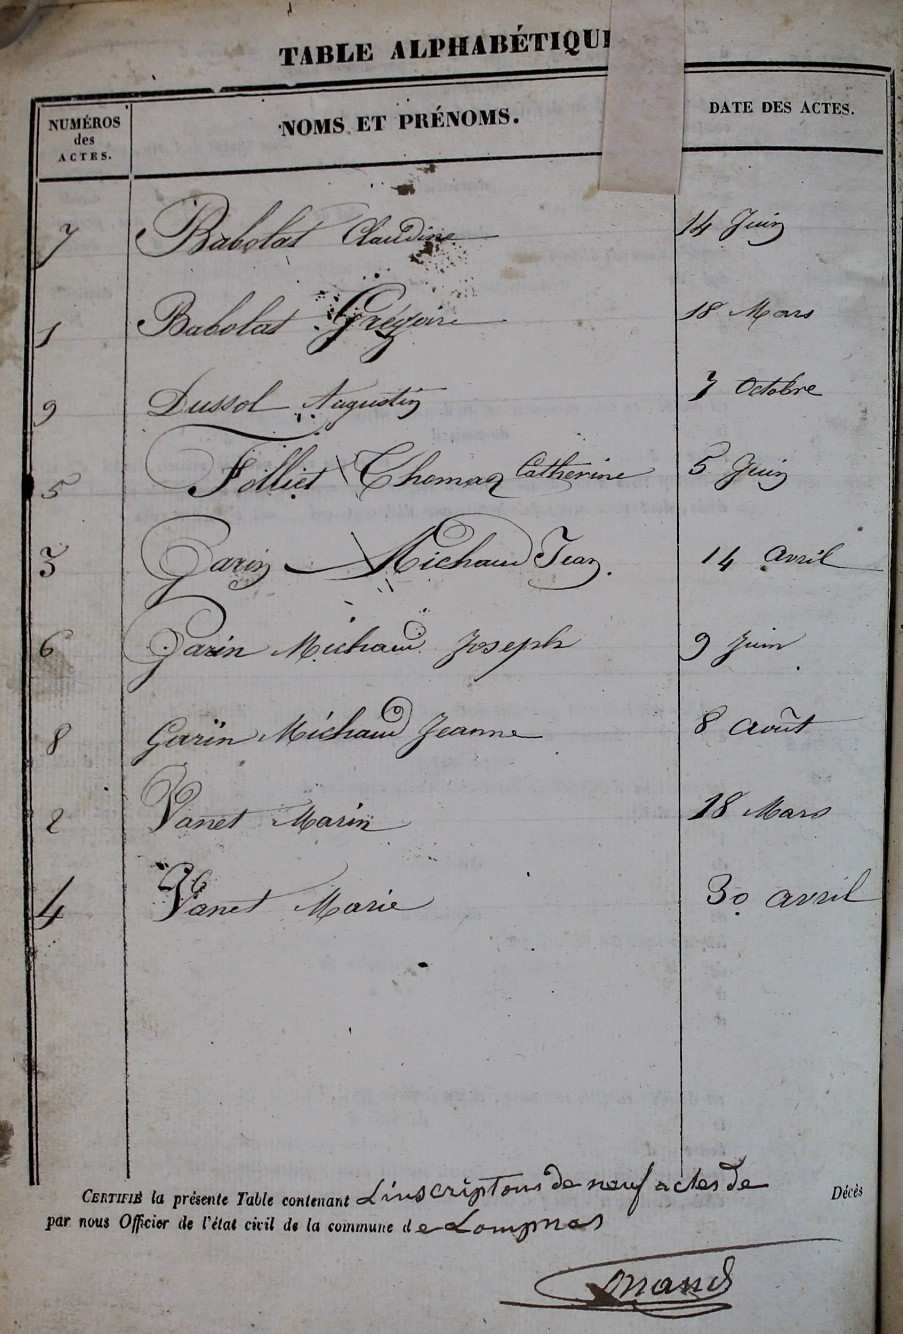 TABLE ALPHABÉTIQU
NUMÉROS des ACTES. NOMS ET PRÉNOMS. DATE DES ACTES.
7 Babolat Claudine 14 Juin
1 Babolat Grégoire 18 Mars
9 Dussol Augustin 7 Octobre
5 Folliet Thomaz Catherine 5 Juin
3 Garin Michaud Jean 14 avril
6 Garin Michaud Joseph 9 Juin
8 Garin Michaud Jeanne 8 Août
2 Vanet Marin 18 Mars
4 Vanet Marie 30 avril
CERTIFIÉ la présente Table contenant L'inscriptons de neuf actes de Décès
par nous Officier de l'état civil de la commune de Lompnas